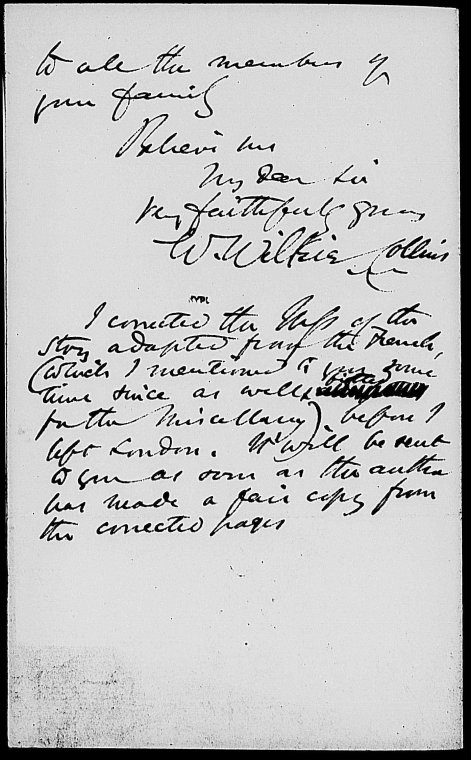 to all the members of
your family
Believe me
My dear Sir
very faithfully yours
W. Wilkie Collins
I corrected the MSS of the
story adapted from the French,
(which I mentioned to you some
time since as well
for the Miscellany) before I
left London. It will be sent
to you as soon as the author
has made a fair copy from
the corrected pages